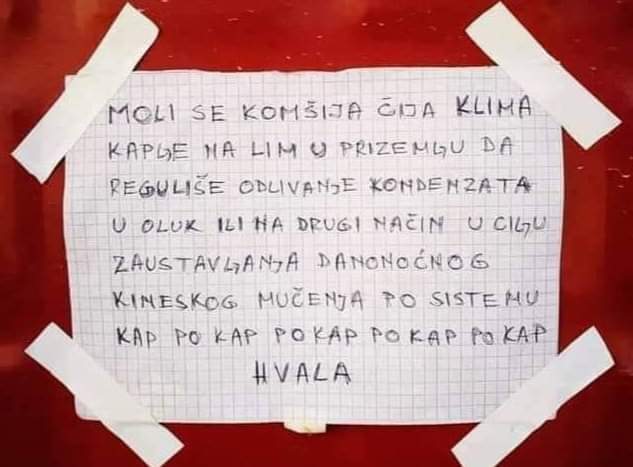 MOLI SE KOMŠIJA ČIJA KLIMA
KAPLJE NA LIM U PRIZEMLJU DA
REGULIŠE ODLIVANJE KONDENZATA
U OLUK ILI NA DRUGI NAČIN U CILJU
ZAUSTAVLJANJA DANONOĆNOG
KINESKOG MUČENJA PO SISTEMU
KAP PO KAP PO KAP PO KAP PO KAP
HVALA